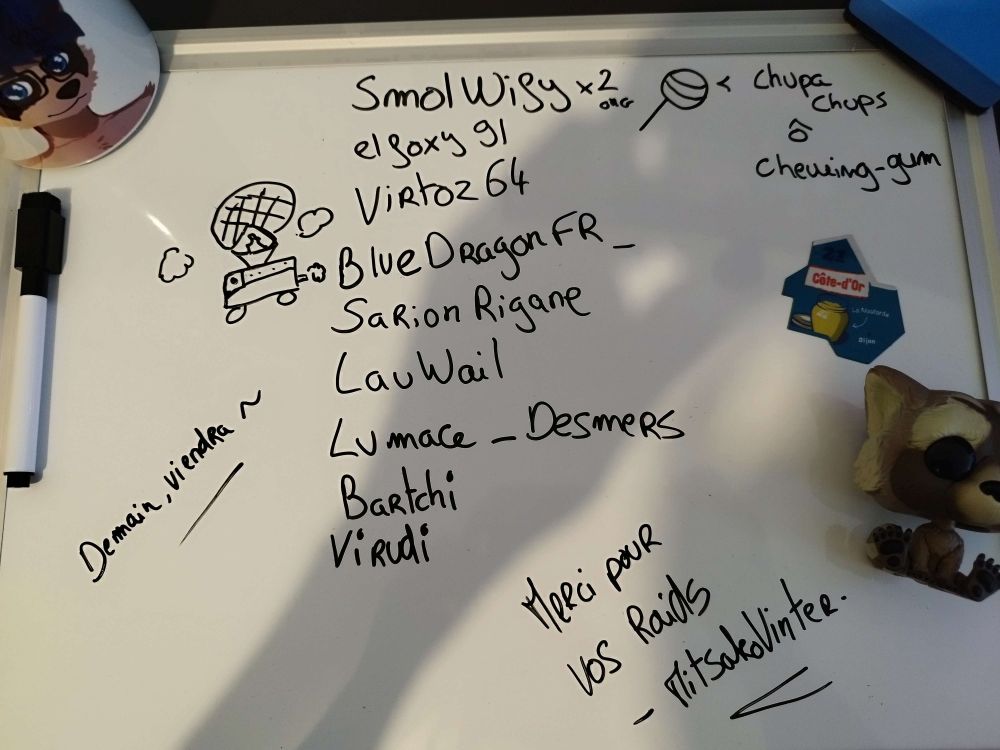 SmolWiffy x2
OMG
< Chupa
Chups
ô
Chewing-gum
elfoxy91
Virtoz64
BlueDragonFR_
SarionRigane
LauWail
Lumace_Desmers
Bartchi
Virudi
21
Côte-d'Or
La Moutarde
Dijon
Demain, viendra ~
Merci pour
vos Raids
_ MitsakoVinter.